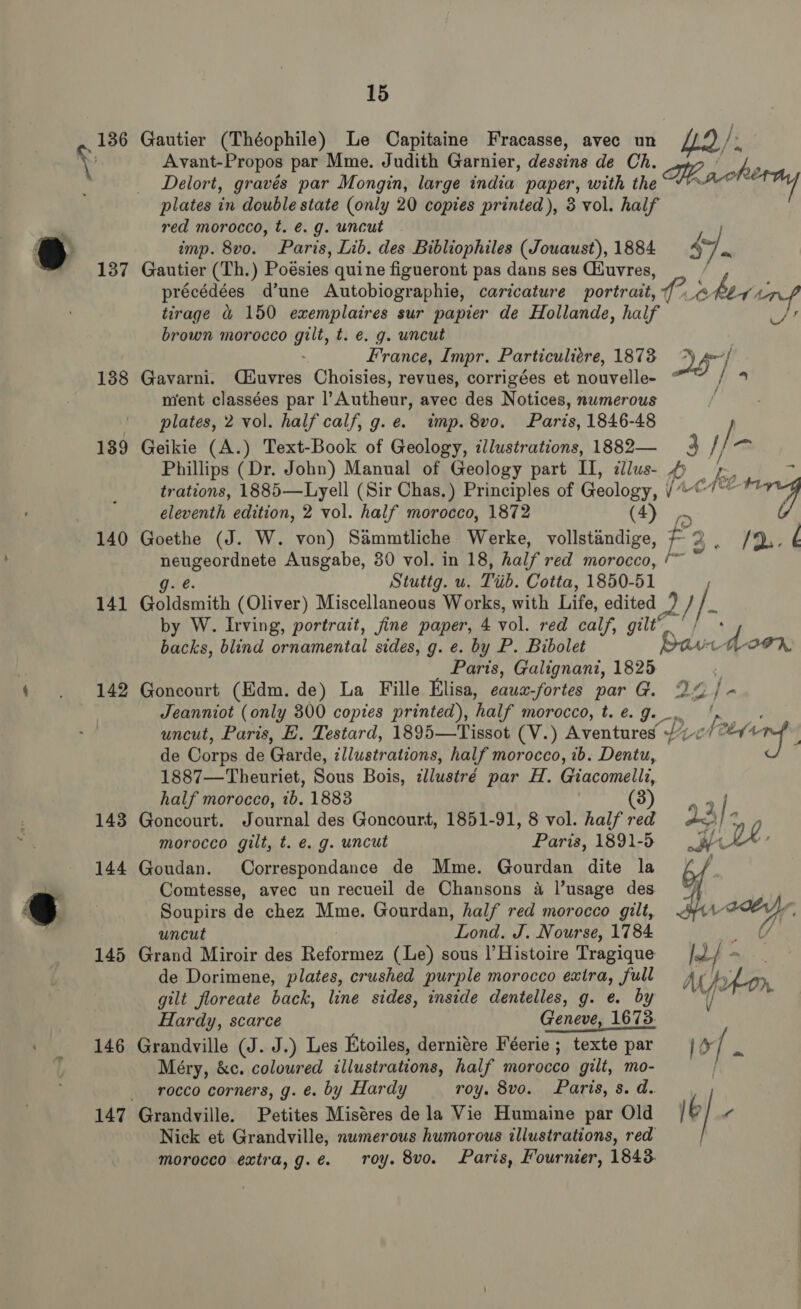 15
136 Gautier (Théophile) Le Capitaine Fracasse, avec un 42/-
Avant-Propos par Mme. Judith Garnier, dessins de Ch.
Delort, gravés par Mongin, large india paper, with the
plates in double state (only 20 copies printed), 3 vol. half
red morocco, t. e. g. uncut
imp. 8vo. Paris, Lib. des Bibliophiles (Jouaust), 1884
137 Gautier (Th.) Poésies qui ne figueront pas dans ses Œuvres,
précédées d'une Autobiographie, caricature portrait,
tirage à 150 exemplaires sur papier de Hollande, half
brown morocco gilt, t. e. g. uncut
France, Impr. Particulière, 1873
138 Gavarni. Œuvres Choisies, revues, corrigées et nouvelle-
ment classées par l'Autheur, avec des Notices, numerous
plates, 2 vol. half calf, g. e. imp. 8vo. Paris, 1846-48
139 Geikie (A.) Text-Book of Geology, illustrations, 1882— 31/-
Phillips (Dr. John) Manual of Geology part II, illus-
trations, 1885—Lyell (Sir Chas.) Principles of Geology,
eleventh edition, 1872 2 vol. half morocco, 1872 (4)
140 Goethe (J. W. von) Sämmtliche Werke, vollständige,
neugeordnete Ausgabe, 30 vol. in 18, half red morocco,
g. e. Stuttg. u. Tüb. Cotta, 1850-51
141 Goldsmith (Oliver) Miscellaneous Works, with Life, edited
by W. Irving, portrait, fine paper, 4 vol. red calf, gilt
backs, blind ornamental sides, g. e. by P. Bibolet
Paris, Galignani, 1825
142 Goncourt (Edm. de) La Fille Elisa, eaux-fortes par G.
Jeanniot (only 300 copies printed), half morocco, t. e. g.
uncut, Paris, E. Testard, 1895—Tissot (V.) Aventures
de Corps de Garde, illustrations, half morocco, ib. Dentu,
1887—Theuriet, Sous Bois, illustré par H. Giacomelli,
half morocco, ib. 1883 (3)
143 Goncourt. Journal des Goncourt, 1851-91, 8 vol. half red
morocco gilt, t. e. g. uncut Paris, 1891-5
144 Goudan. Correspondance de Mme. Gourdan dite la
Comtesse, avec un recueil de Chansons à l'usage des
Soupirs de chez Mme. Gourdan, half red morocco gilt,
uncut Lond. J. Nourse, 1784
145 Grand Miroir des Reformez (Le) sous l'Histoire Tragique 12/-
de Dorimene, plates, crushed purple morocco extra, full
gilt floreate back, line sides, inside dentelles, g. e. by
Hardy, scarce Geneve, 1673
146 Grandville (J. J.) Les Etoiles, dernière Féerie ; texte par
Méry, &c. coloured illustrations, half morocco gilt, mo-
rocco corners, g. e. by Hardy roy. 8vo. Paris, s. d.
147 Grandville. Petites Misères de la Vie Humaine par Old 16/-
Nick et Grandville, numerous humorous illustrations, red
morocco extra, g. e. roy. 8vo. Paris, Fournier, 1843